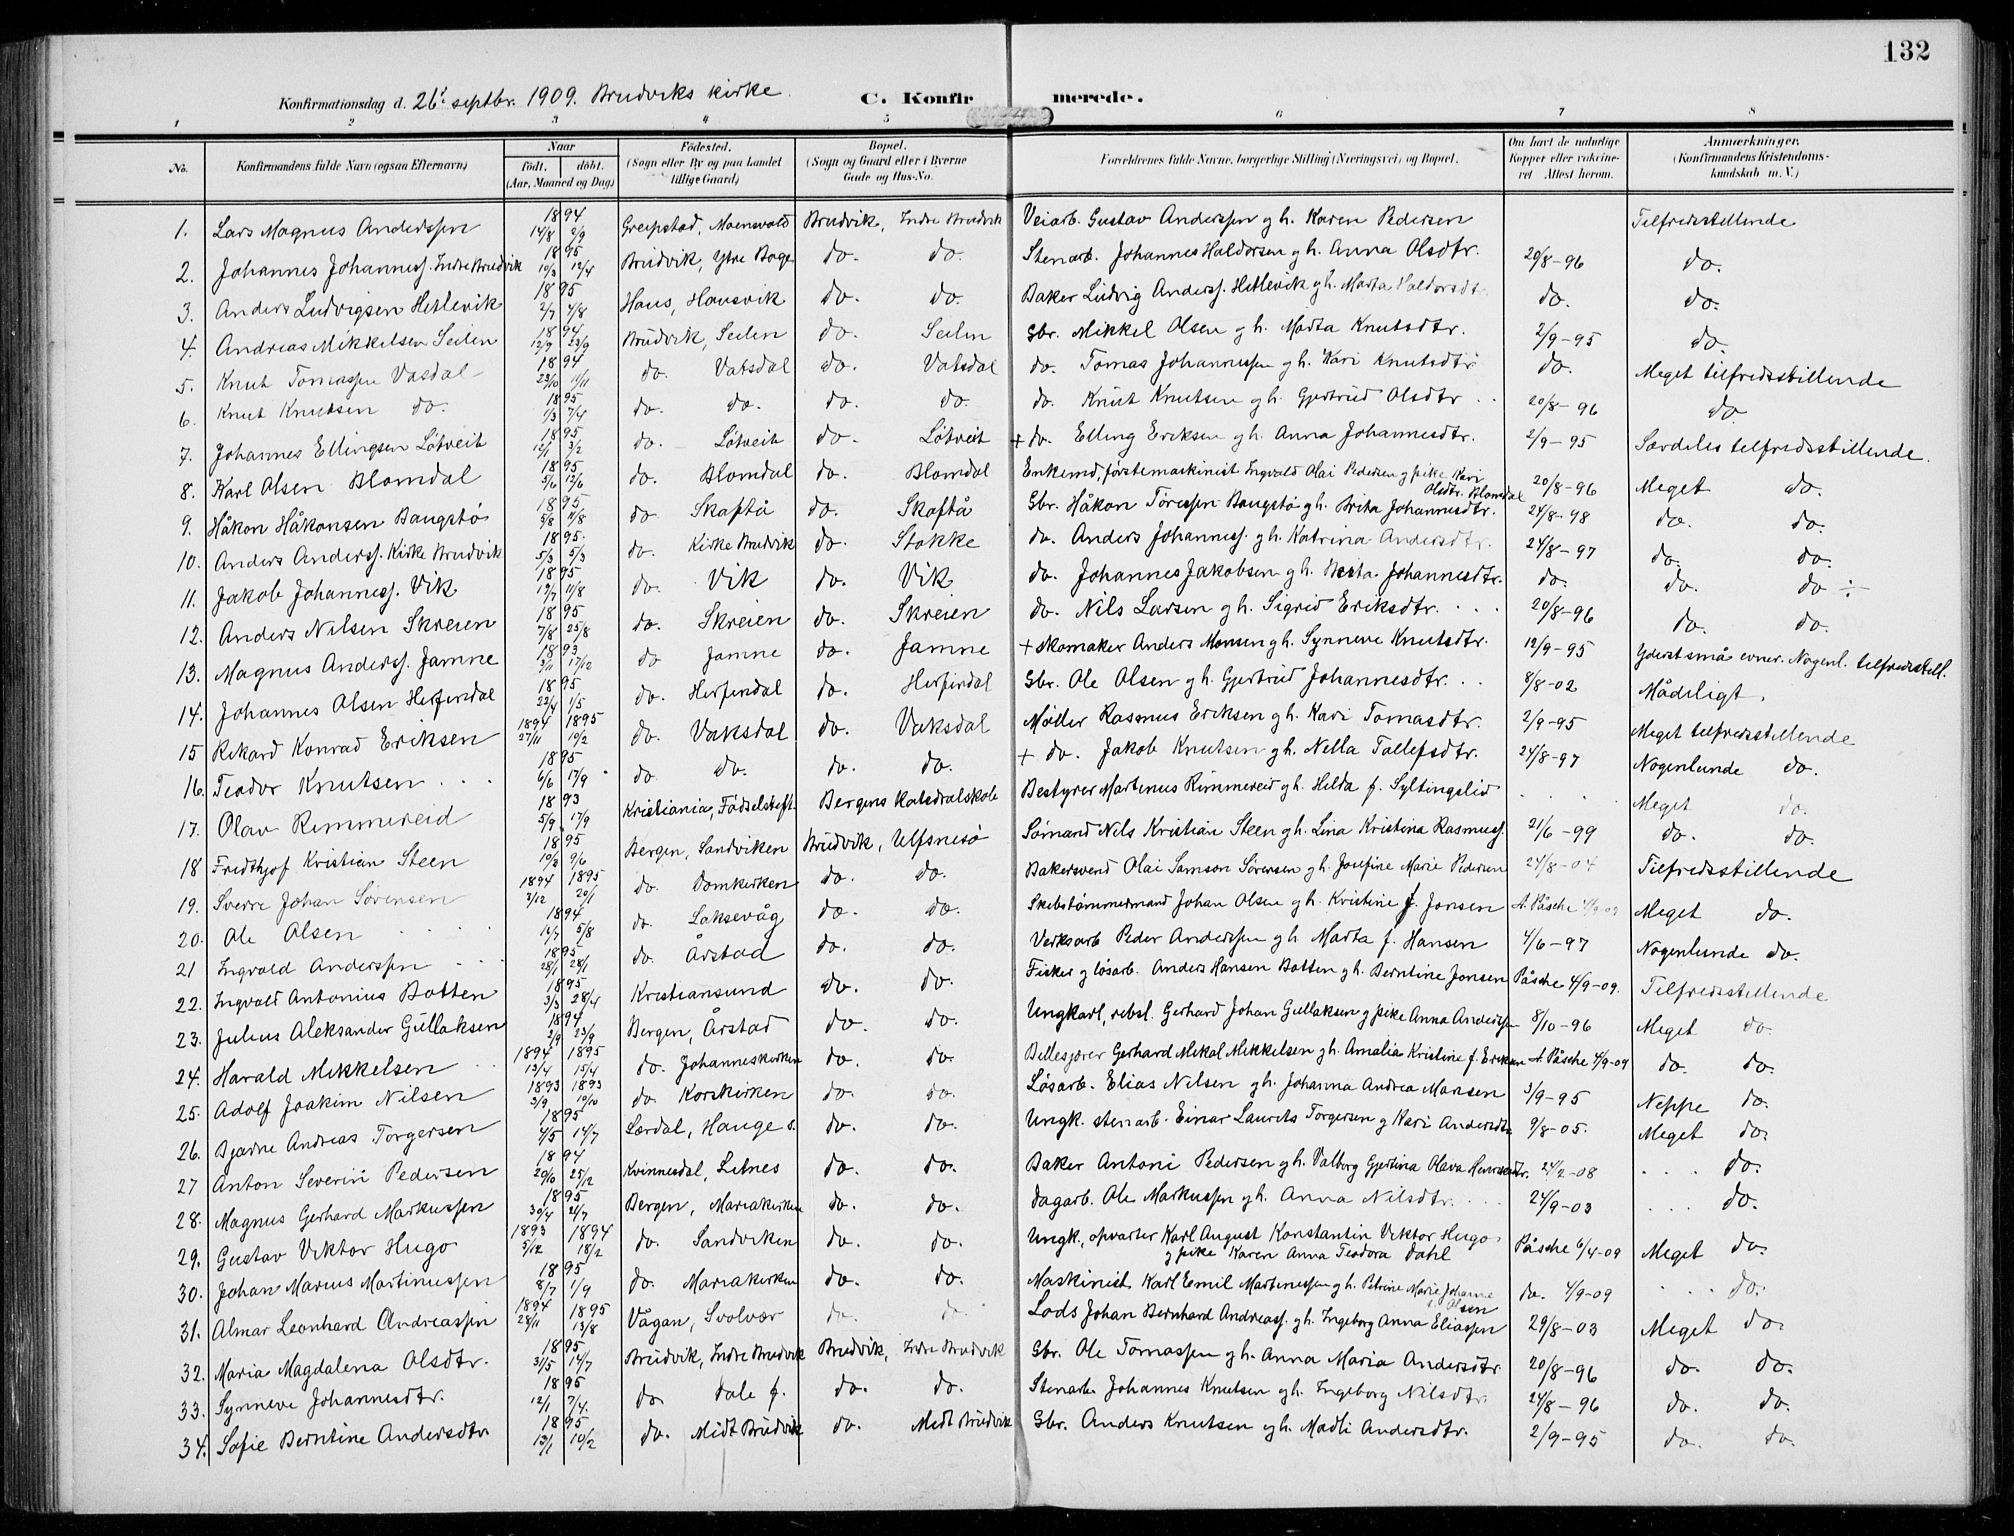 132
Konfirmationsdag d. 26' septbr. 1909. Brudviks kirke. C. Konfirmerede.
1 2 3 4 5 6 7 8
No. Konfirmandens fulde Navn (ogsaa Efternavn) Naar födt. döbt. (Aar, Maaned og Dag) Födested. (Sogn eller By og paa Landet tillige Gaard) Bopæl. (Sogn og Gaard eller i Byerne Gade og Hus-No. Forældrenes fulde Navne, borgerlige Stilling (Næringsvei) og Bopæl. Om havt de naturlige Kopper eller vakcineret Attest herom. Anmærkninger. (Konfirmandens Kristendomskundskab m. V.)
1. Lars Magnus Anderssen 1894 14/8 2/9 Greipstad, Moensvold Brudvik, Indre Brudvik Veiarb. Gustav Anderssen g h. Karen Pedersen Tilfredsstillende
2. Johannes Johanness. Indre Brudvik 1895 10/3 12/4 Brudvik, Ytre Boge do. do. Stenarb. Johannes Haldorsen g h. Anna Olsdtr. 20/8-96 do.
3. Anders Ludvigsen Hetlevik 1895 2/7 4/8 Haus, Hausvik do. do. Baker Ludvig Anderss. Hetlevik g h. Marta Haldorsdtr. do. do.
4. Andreas Mikkelsen Seilen 1894 12/9 23/9 Brudvik, Seilen do. Seilen Gbr. Mikkel Olsen g h. Marta Knutsdtr. 2/9-95 do.
5. Knut Tomassen Vasdal 1894 23/10 11/11 do. Vatsdal do. Vatsdal do. Tomas Johannessen g h. Kari Knutsdtr do. Meget tilfredsstillende
6. Knut Knutsen do. 1895 1/3 7/4 do. do. do. do. do. Knut Knutsen g h. Gjertrud Olsdtr 20/8-96 do
7. Johannes Ellingsen Lötveit 1895 12/1 3/2 do. Lötveit do. Lötveit + do. Elling Eriksen g h. Anna Johannesdtr. 2/9-95 Særdeles tilfredsstillende.
8. Karl Olsen Blomdal 1895 5/6 12/6 do. Blomdal do. Blomdal Enkemd, förstemaskinist Ingvald Olai Pedersen g pike Kari Olsdtr. Blomdal 20/8-96 Meget do.
9. Håkon Håkonsen Baugstö 1895 5/8 11/8 do Skaftå do. Skaftå Gbr. Håkon Toressen Baugstö g h. Brita Johannesdtr. 24/8-98 do. do.
10. Anders Anderss. Kirke Brudvik 1895 5/3 5/3 do. Kirke Brudvik do. Stokke do. Anders Johanness. g h. Katrina Andersdtr. 24/8-97 do. do.
11. Jakob Johanness. Vik 1895 19/7 11/8 do. Vik do. Vik do. Johannes Jakobsen g h. Brita Johannesdtr. do. do. do ÷
12. Anders Nilsen Skreien 1895 7/8 25/8 do. Skreien do. Skreien do. Nils Larsen g h. Sigrid Eriksdtr. 20/8-96 do. do.
13. Magnus Anderss. Jamne 1893 3/11 17/12 do Jamne do. Jamne + skomaker Anders Monsen g h. Synneve Knutsdtr. 12/9-95 Yderst små evner. Nogenl. tilfredsstill.
14. Johannes Olsen Herfindal 1895 22/4 1/5 do. Herfindal do. Herfindal Gbr. Ole Olsen g h. Gjertrud Johannesdtr. 8/8-02 Mådeligt.
15 Rikard Konrad Eriksen 1894 27/11 1895 10/2 do. Vaksdal do. Vaksdal Möller Rasmus Eriksen g h. Kari Tomasdtr. 2/9-95 Meget tilfredsstillende
16. Teodor Knutsen 1895 6/6 17/9 do do. do. do. + do. Jakob Knutsen g h. Nella Tollefsdtr. 24/8-97 Nogenlunde do.
17. Olav Rimmereid 1893 5/9 17/9 Kristiania, Födselsstift. Bergens Katedralskole Bestyrer Martinus Rimmereid g h. Hilda f. Syltingslid Meget do.
18 Fredthjof Kristian Steen 1895 10/2 9/6 Bergen, Sandviken Brudvik, Ulfsnesö Sömand Nils Kristian Steen g h. Lina Kristina Rasmuss. 21/6-99 do. do.
19. Sverre Johan Sörensen 1894 3/12 1895 20/1 do. Domkirken do. do. Bakersvend Olai Samson Sörensen g h. Josefine Marie Pedersen 24/8-04 Tilfredsstillende
20. Ole Olsen 1894 14/7 5/8 do Laksevåg do. do. Skibstömmermand Johan Olsen g h. Kristine f. Jonsen A. Påsche 4/9-09 Meget do.
21 Ingvald Anderssen 1895 28/1 28/1 do. Årstad do. do. Verksarb Peder Anderssen g h. Marta f. Hansen 4/6-97 Nogenlunde do.
22. Ingvald Antonius Botten 1895 3/3 28/4 Kristiansund do. do. Fisker g lösarb. Anders Hansen Botten g h. Berntine Jonsen Påsche 4/9-09. Tilfredsstillende
23. Julius Aleksander Gullaksen 1894 2/9 23/9 Bergen, Årstad do. do. Ungkarl, rebsl. Gerhard Johan Gullaksen g pike Anna Anderssen 8/10-96 Meget do.
24. Harald Mikkelsen 1894 13/4 1895 15/4 do. Johanneskirken do. do. Gerhard Mikal Mikkelsen g h. Amalia Kristine f. Eriksen A. Påsche 4/9-09 do. do.
25. Adolf Joakim Nilsen 1893 3/9 1893 10/10 do. Korskirken do. do. Lösarb. Elias Nilsen g h. Johanna Andrea Monsen 3/9-95 Neppe do.
26. Bjarne Andreas Torgersen 1895 4/5 14/7 Lærdal, Hauge s. do. do. Ungk. stenarb. Einar Laurits Torgersen g Kari Andersdtr 9/8-05. Meget do.
27 Anton Severin Pedersen 1894 20/10 25/12 Kvinnesdal, Letnes do. do. Baker Antoni Pedersen g h. Valborg Gjertina Olava Henriksdtr. 24/2-08 do.
28. Magnus Gerhard Markussen 1895 30/4 21/7 Bergen, Mariakirken do. do. Dagarb. Ole Markussen g h. Anna Nilsdtr. 24/9-03 do.
29. Gustav Viktor Hugo 1893 5/12 1894 18/2 do. Sandviken do. do. Ungk, opvarter Karl August Konstantin Viktor Hugo g pike Karen Anna Teodora Dahl Påsche 6/4-09 Meget do.
30. Johan Marius Martinussen 1895 8/7 1/9 do. Mariakirken do. do. Maskinist Karl Emil Martinussen g h. Petrine Marie Johanne Olsen do. 4/9-09 do.
31. Almar Leonhard Andreassen 1894 28/11 1895 13/8 Vågan, Svolvær do. do. Lods Johan Bernhard Andreass. g h. Ingeborg Anna Eliassen 29/8-03 Meget do.
32. Maria Magdalena Olsdtr. 1895 31/5 14/7 Brudvik, Indre Brudvik Brudvik, Indre Brudvik Gbr. Ole Tomassen g h. Anna Maria Andersdtr 20/8-96 do. do.
33. Synneve Johannesdtr. 1895 12/1 7/4 do Dale f. do. do. Stenarb. Johannes Knutsen g h. Ingeborg Nilsdtr. 24/8-96 do. do.
34. Sofie Berntine Andersdtr 1895 13/1 10/2 do. Midt Brudvik do. Midt Brudvik Gbr. Anders Knutsen g h. Madli Andersdtr. 2/9-95 do. do.